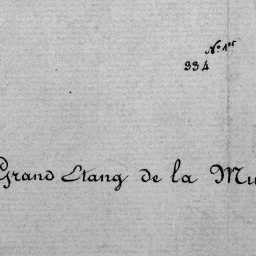 N° 1er
334
Grand Etang de la Mu